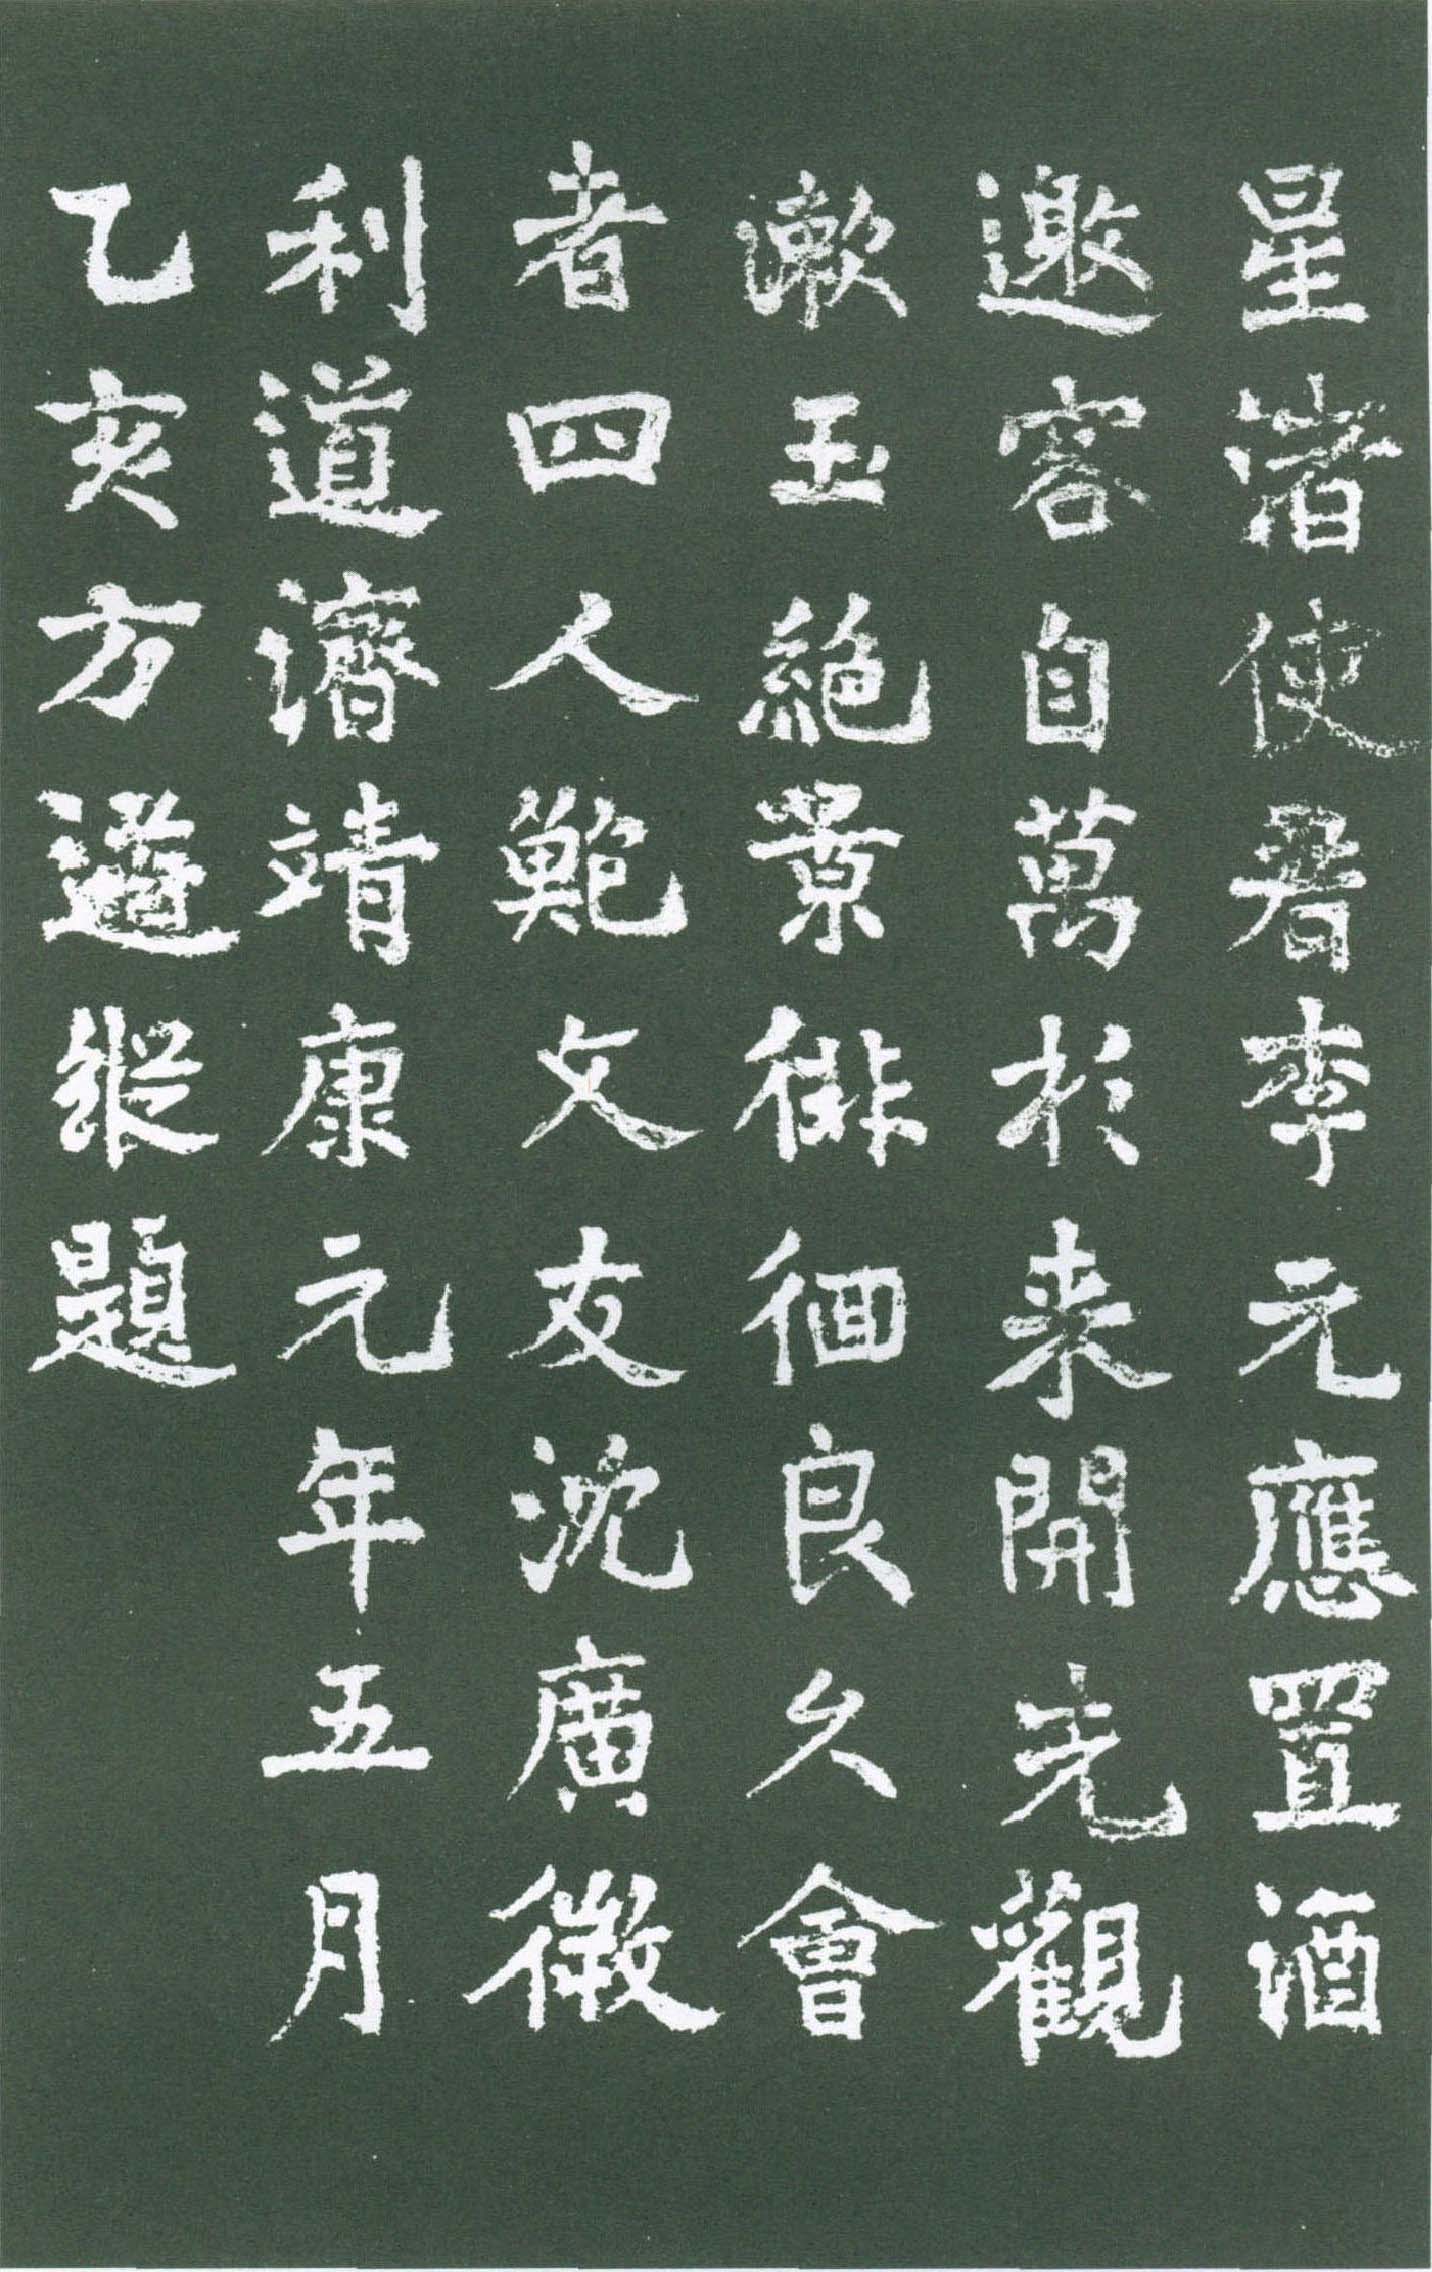 星渚使君李元應置酒
邀客自萬杉来開先觀
漱玉絕景徘徊良久會
者四人鄭文友沈廣微
利道濟靖康元年五月
乙亥方縱題